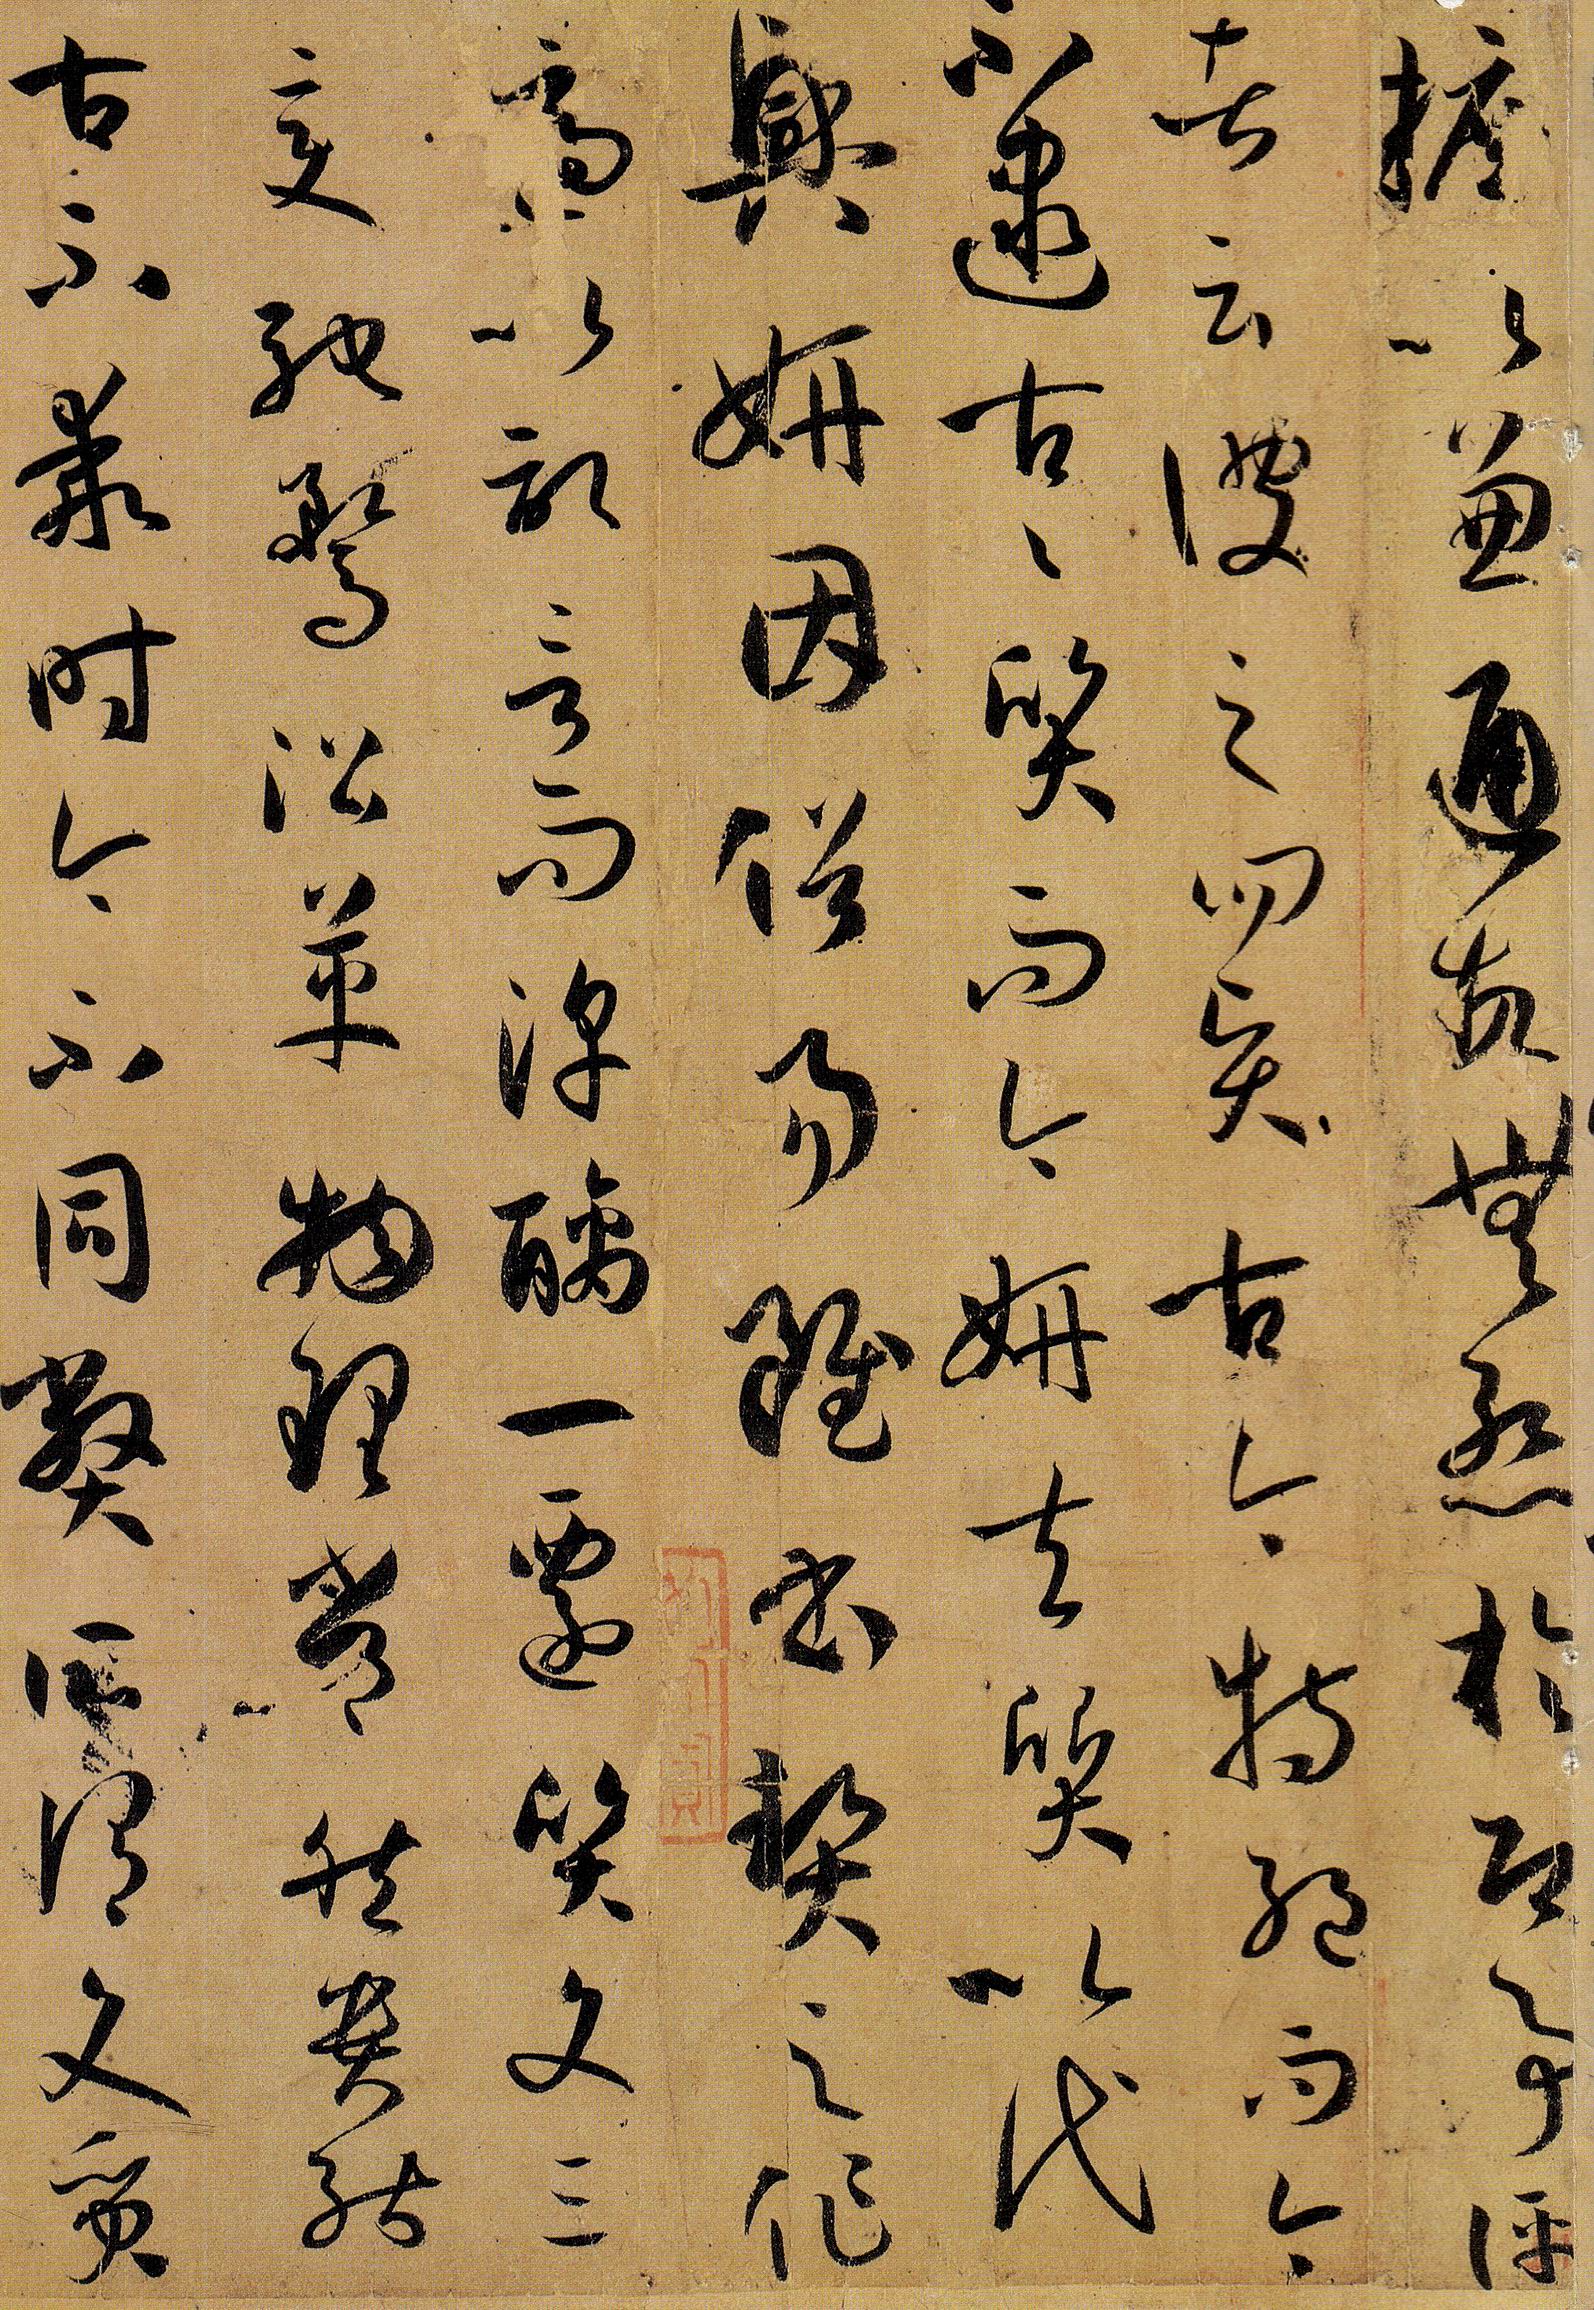 擅以兼通故無慙於即事評
者云彼之四賢古今特絕而今
不逮古古質而今妍夫質以代
興妍因俗易雖書契之作
適以記言而淳醨一遷質文三
變馳騖沿革物理常然貴能
古不乖時今不同弊所謂文質